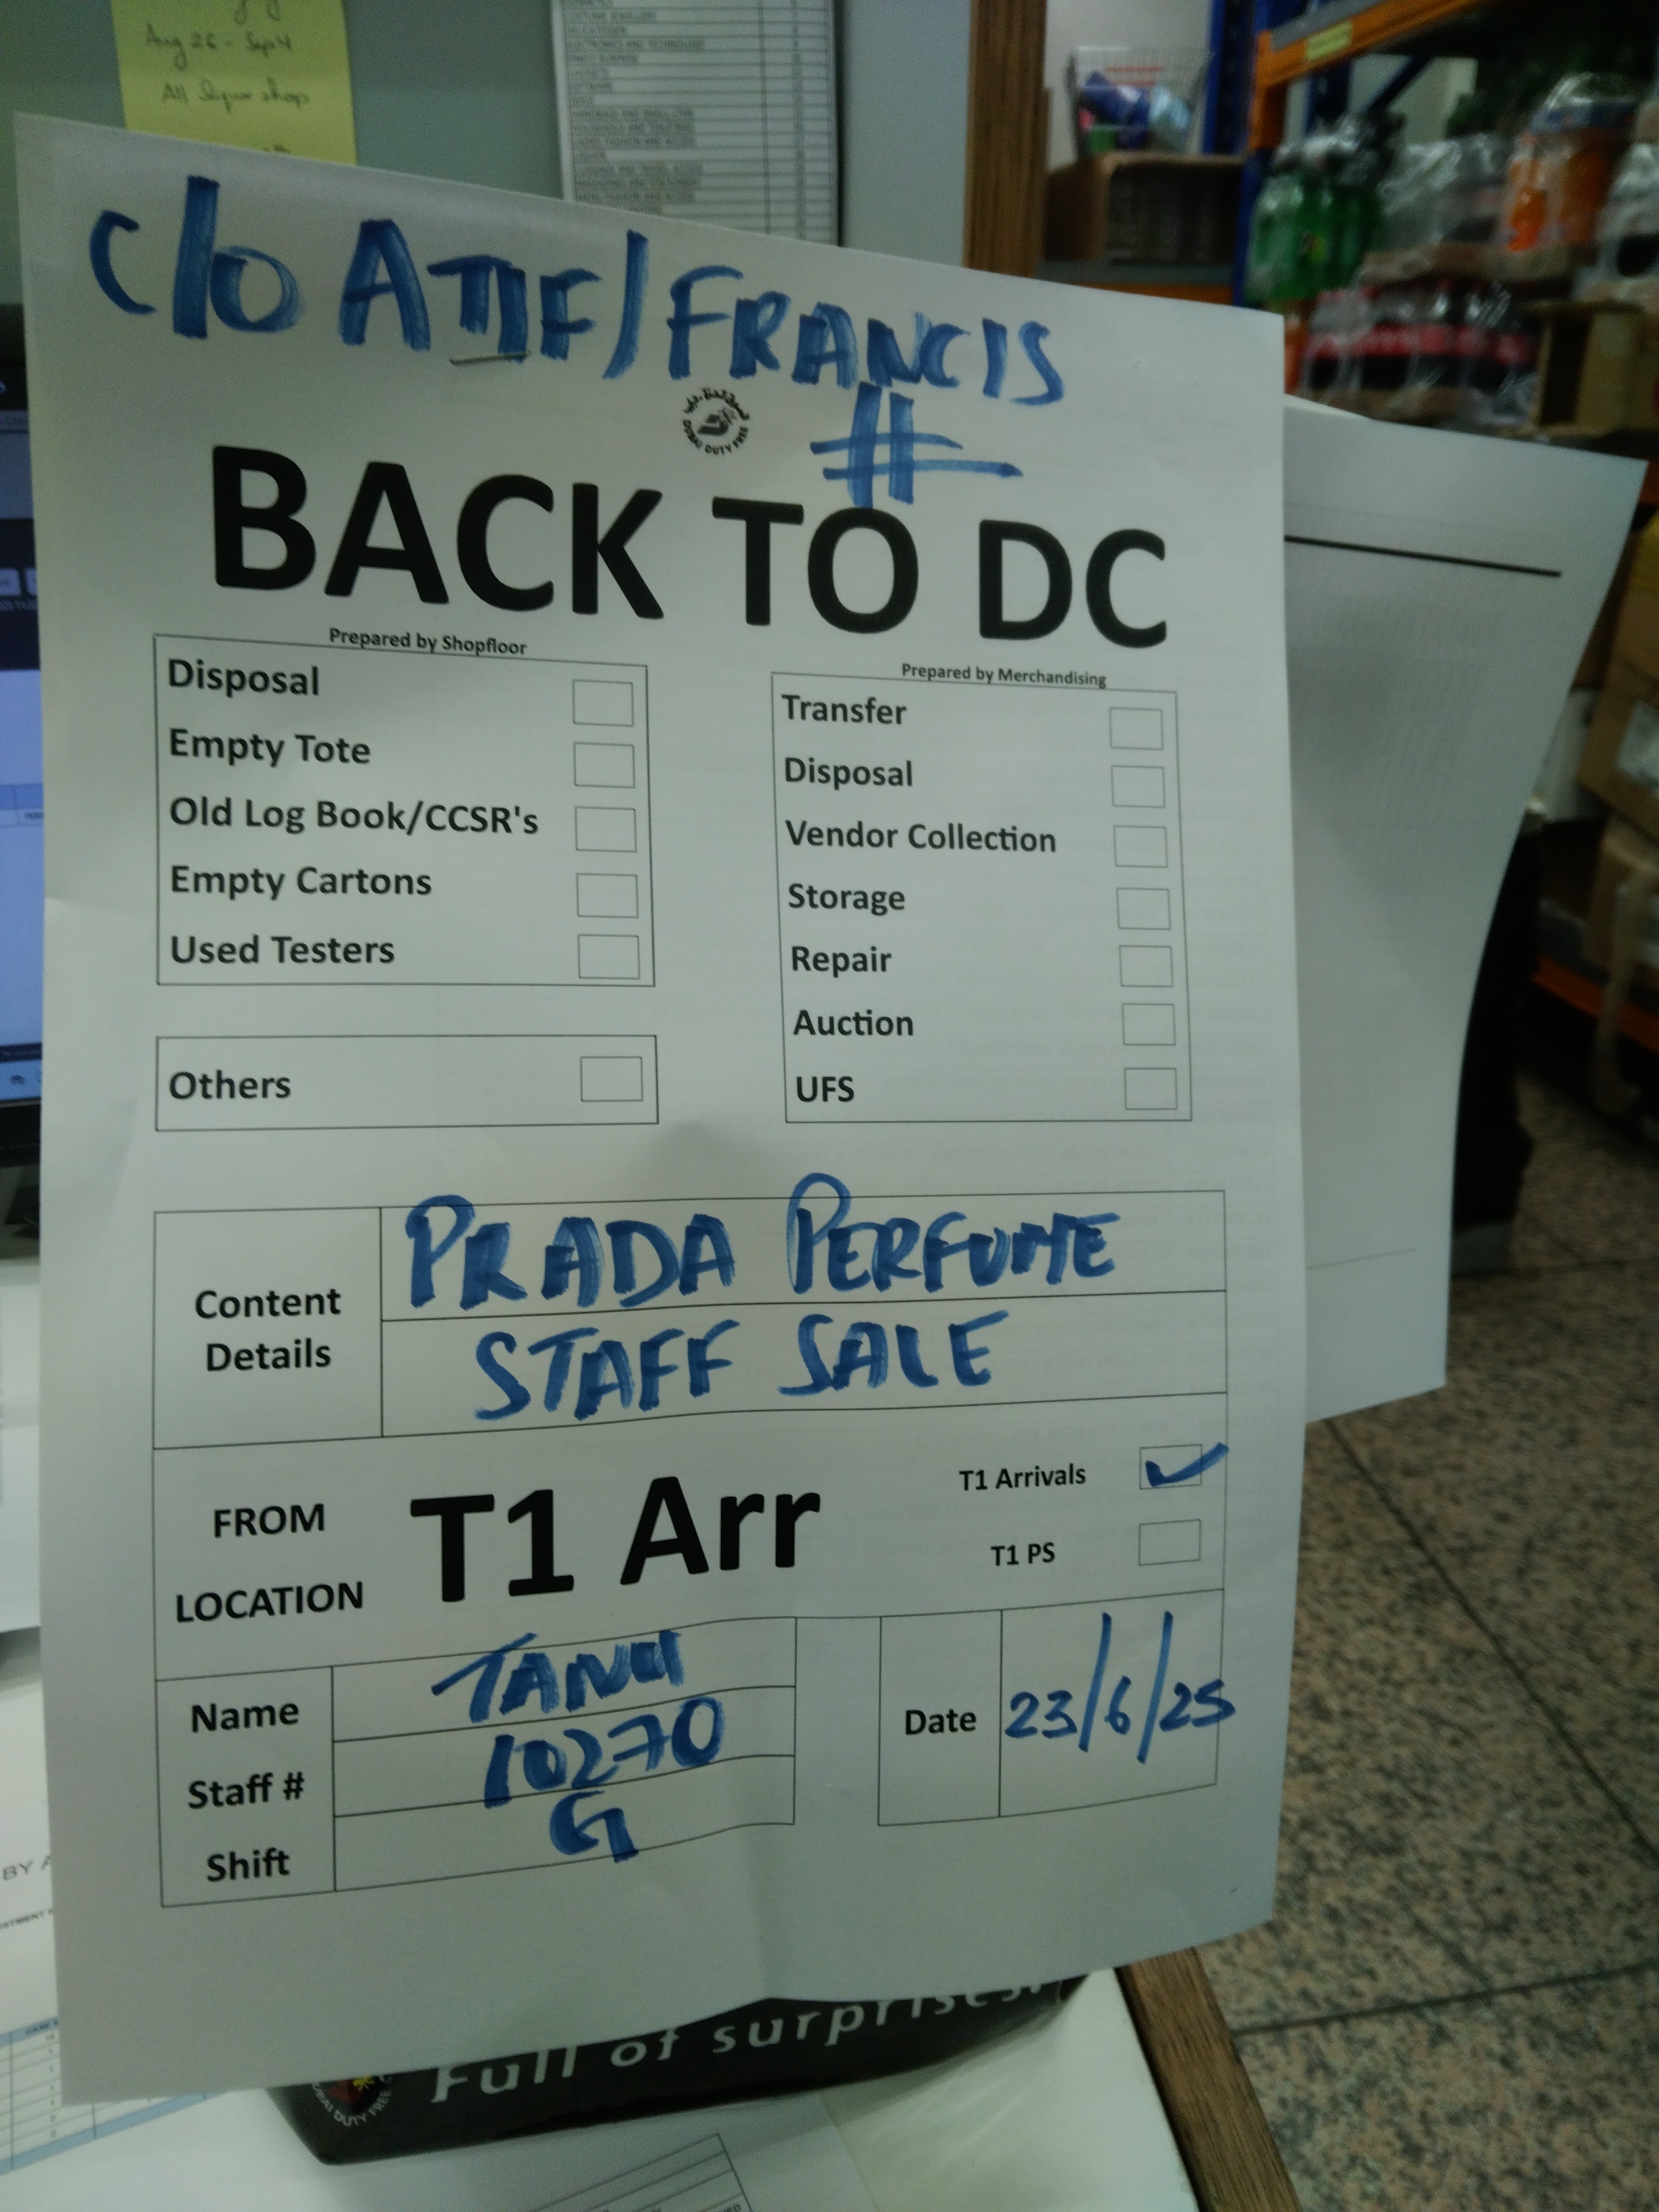 Aug 26 - Sep 4
All liquor shop
c/o ATIF/FRANCIS
#
DUBAI DUTY FREE
BACK TO DC
Prepared by Shopfloor
Disposal
Empty Tote
Old Log Book/CCSR's
Empty Cartons
Used Testers
Others
Prepared by Merchandising
Transfer
Disposal
Vendor Collection
Storage
Repair
Auction
UFS
Content Details
PRADA PERFUME
STAFF SALE
FROM LOCATION
T1 Arr
T1 Arrivals
T1 PS
Name
Staff # 10270
Shift G
Date 23/6/25
Full of surprises
DUBAI DUTY FREE
BY A